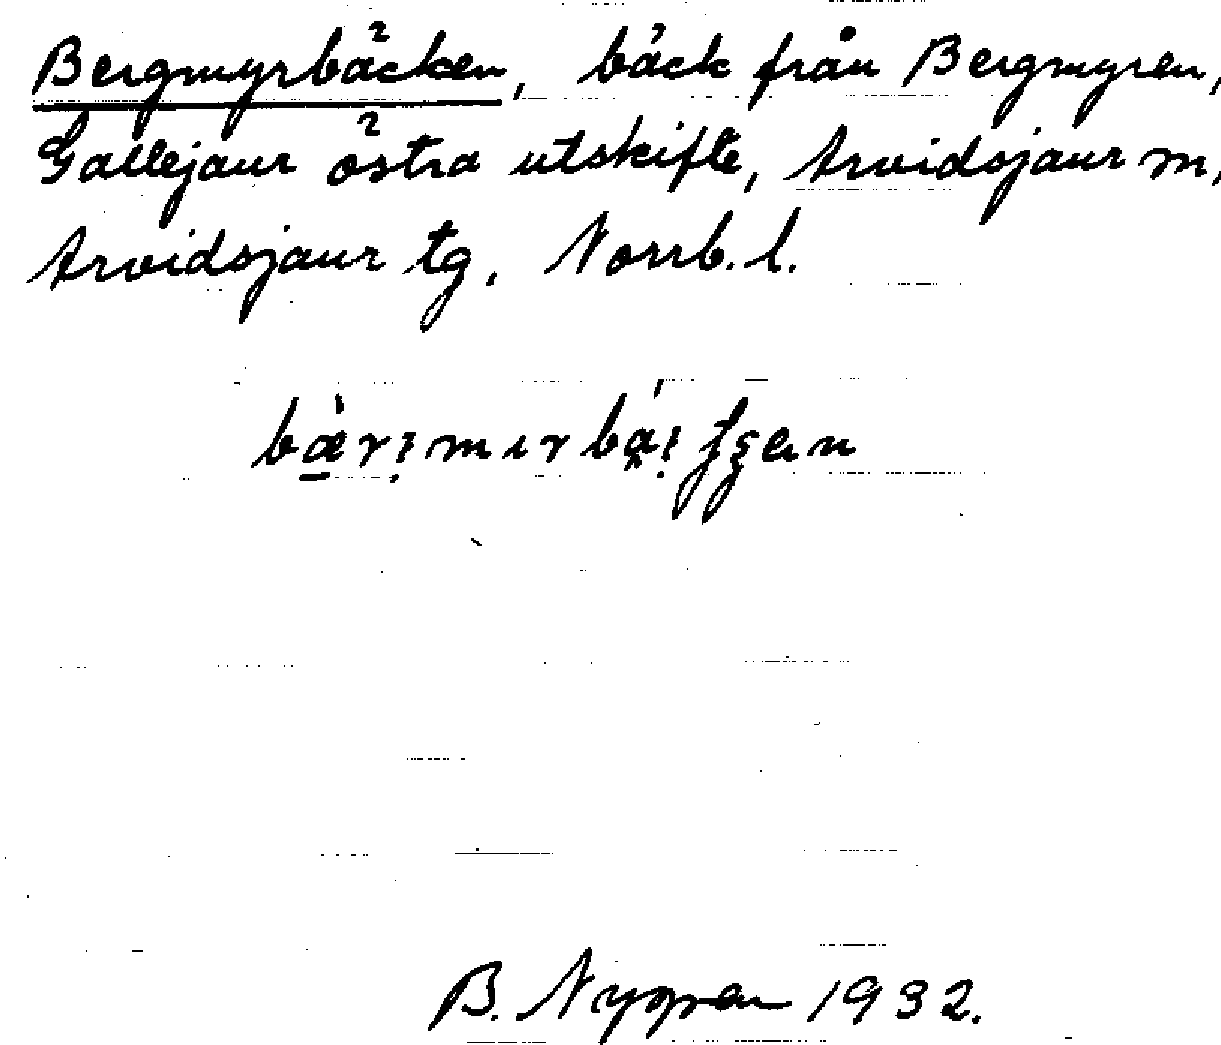 Bergmyrbäcken, bäck från Bergmyren,
Gallejaur östra utskifte, Arvidsjaur m,
Arvidsjaur tg, Norrb. l.
B. Nygren 1932.